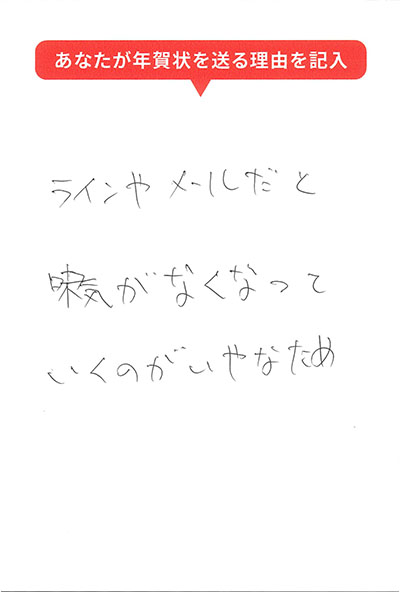 あなたが年賀状を送る理由を記入
ラインやメールだと
味気がなくなって
いくのがいやなため